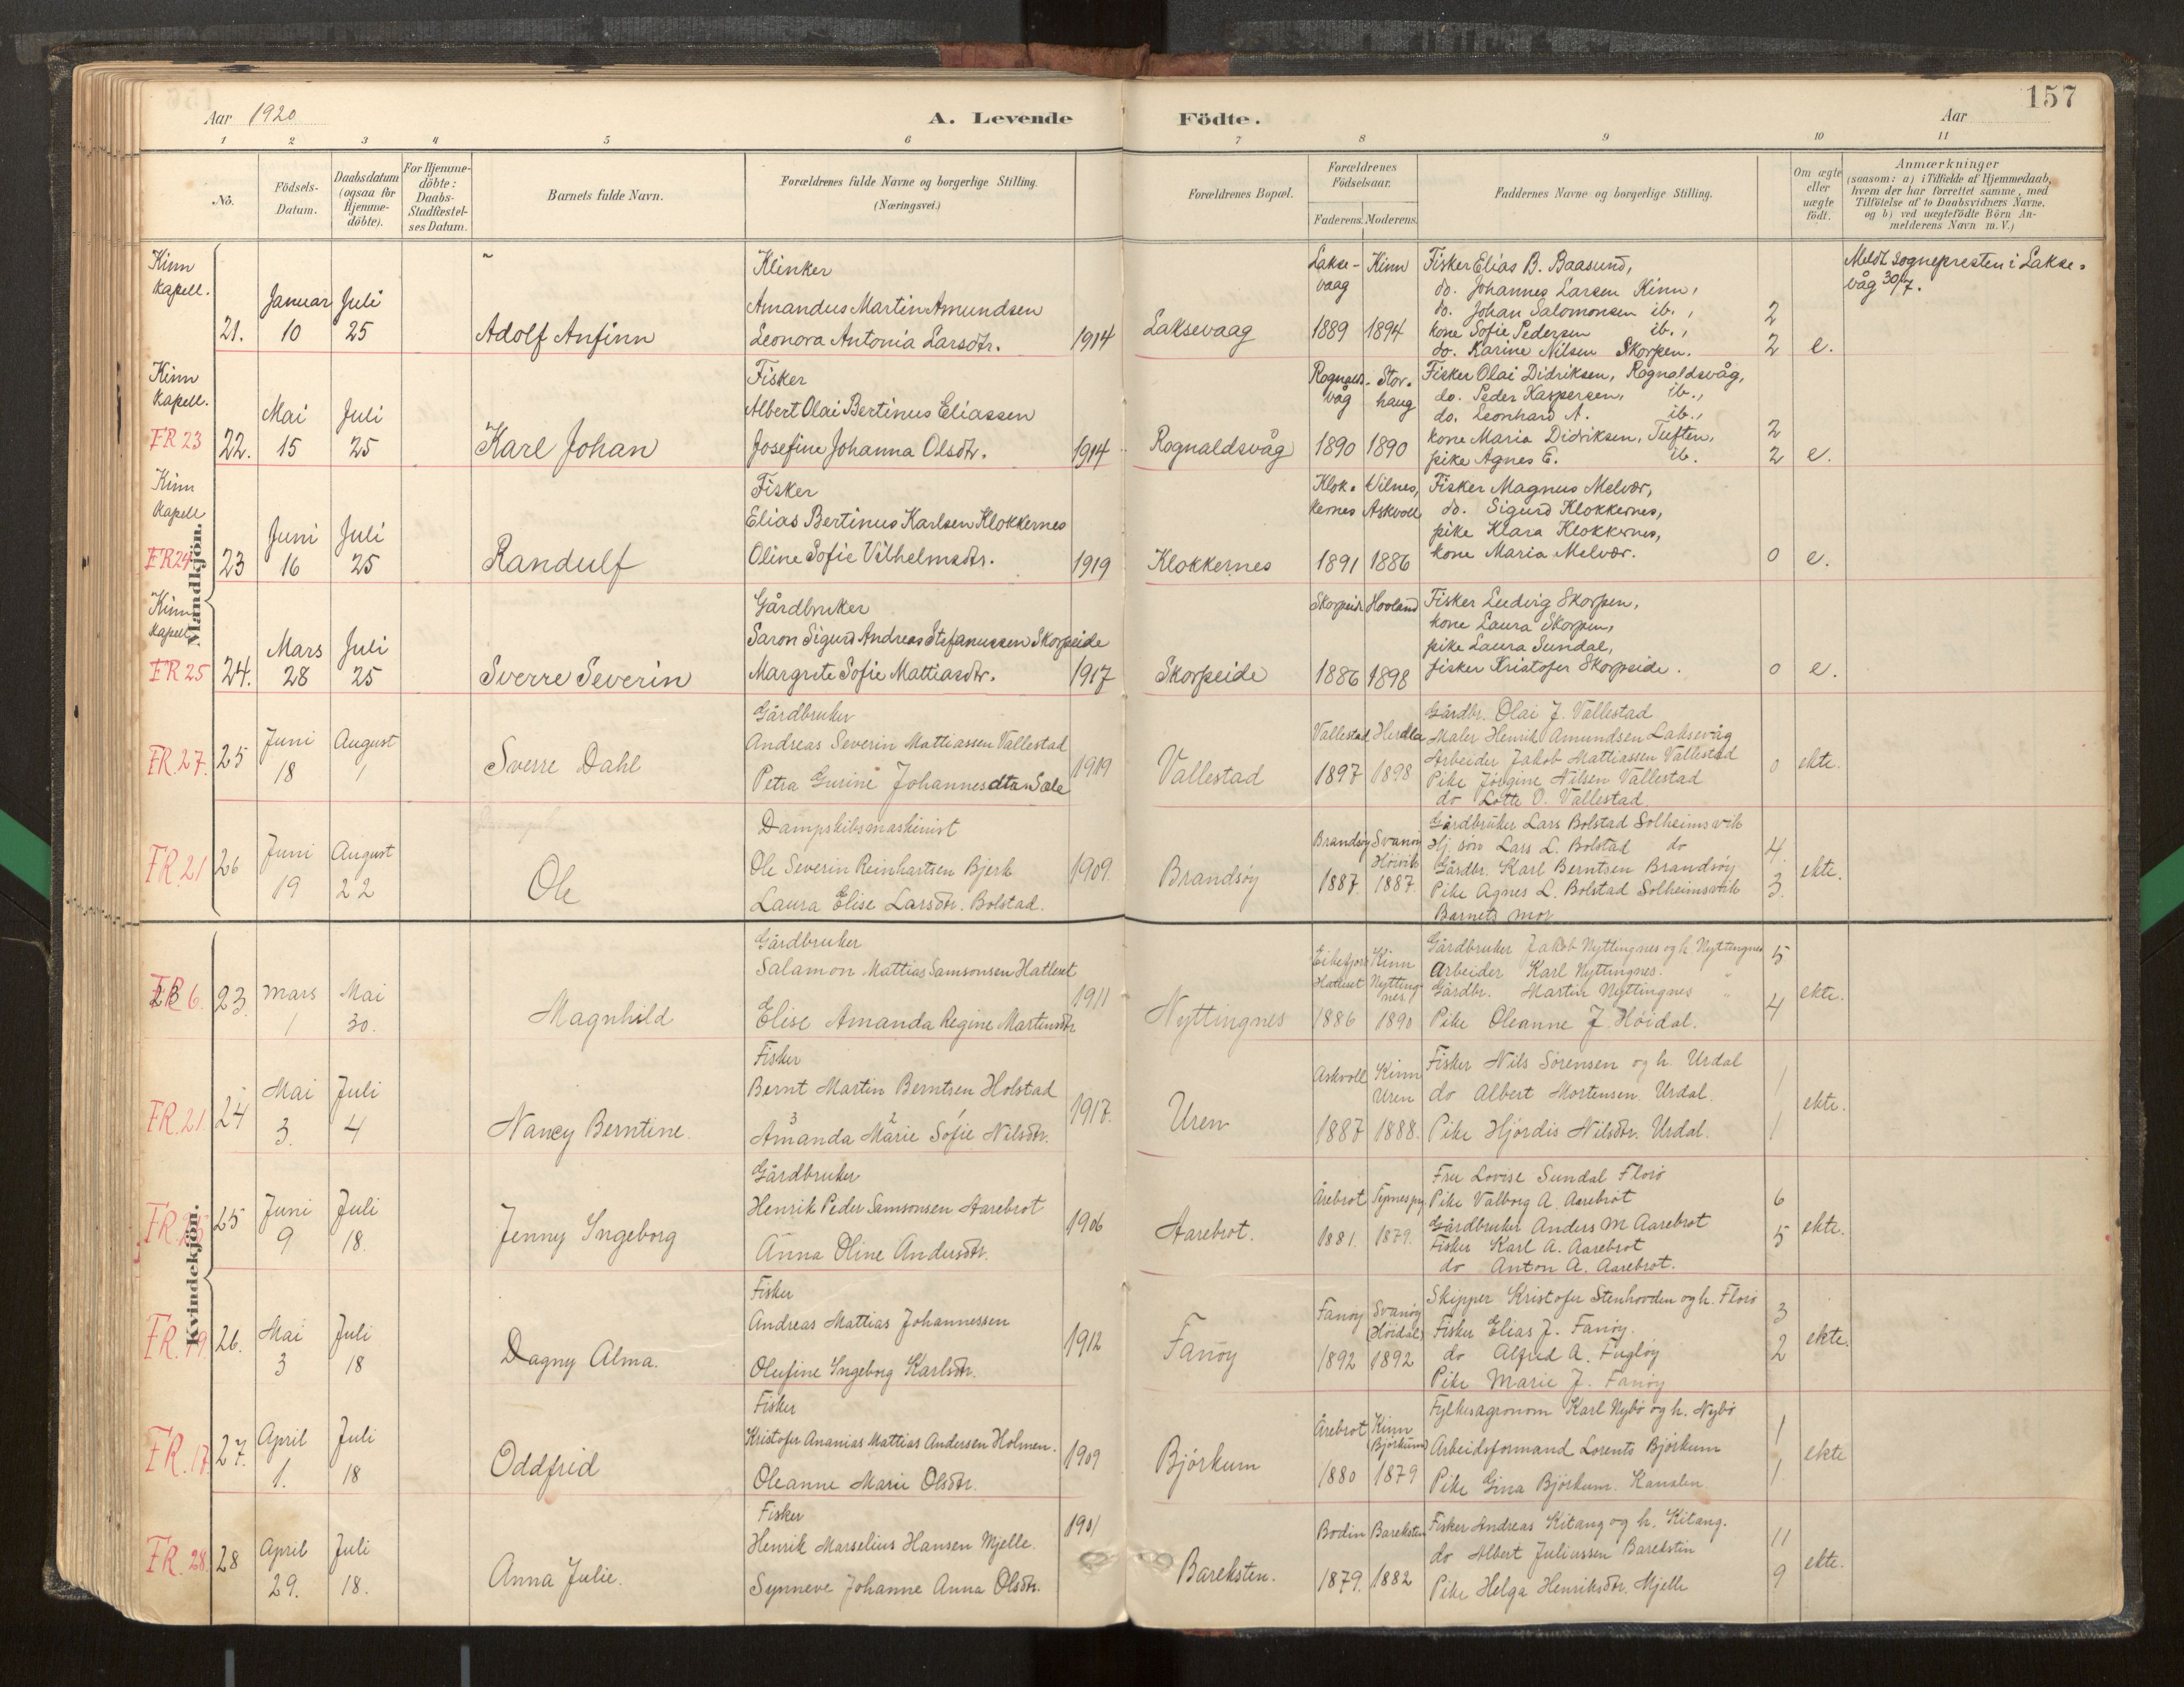 157
Aar 1920
A. Levende Födte.
Aar
1 2 3 4 5 6 7 8 9 10 11
No.
Födsels-Datum.
Daabsdatum (ogsaa for Hjemme-döbte).
For Hjemme-döbte: Daabs-Stadfæstel-ses Datum.
Barnets fulde Navn.
Forældrenes fulde Navne og borgerlige Stilling.
(Næringsvei.)
Forældrenes Bopæl.
Forældrenes Födselsaar.
Faderens. Moderens.
Faddernes Navne og borgerlige Stilling.
Om ægte eller uægte født.
Anmærkninger
(saasom: a) i Tilfælde af Hjemmedaab, hvem der har forrettet samme, med Tilföielse af to Daabsvidners Navne, og b) ved uægtefödte Börn An-melderens Navn m. V.)
Mandkjön.
Kinn kapell.
21. Januar 10 Juli 25
Adolf Anfinn
Klinker
Amandus Martin Amundsen
Leonora Antonia Larsdtr. 1914
Laksevaag
Lakse-vaag 1889
Kinn 1894
Fisker Elias B. Baasund,
do. Johannes Larsen Kinn,
do. Johan Salomonsen ib.,
kone Sofie Pedersen ib.,
do. Karine Nilsen Skorpen.
2
2 e.
Meldt sognepresten i Lakse-
våg 30/7.
Kinn kapell.
FR 23 22. Mai 15 Juli 25
Karl Johan
Fisker
Albert Olai Bertinus Eliassen
Josefine Johanna Olsdtr. 1914
Rognaldsvåg
Rognalds-våg 1890
Stor-haug 1890
Fisker Olai Didriksen, Rognaldsvåg,
do. Peder Kaspersen, ib.,
do. Leonhard A. ib.,
kone Maria Didriksen, Tuften,
pike Agnes E. ib.
2
2 e.
Kinn Kapell
FR 24 23 Juni 16 Juli 25
Randulf
Fisker
Elias Bertinus Karlsen Klokkernes
Oline Sofie Vilhelmsdtr. 1919
Klokkernes
Klok-kernes 1891
Vilnes, Askvoll 1886
Fisker Magnus Melvær,
do. Sigurd Klokkernes,
pike Klara Klokkernes,
kone Maria Melvær.
0 e.
Kinn kapell
FR 25 24. Mars 28 Juli 25
Sverre Severin
Gårdbruker
Saron Sigurd Andreas Stefanussen Skorpeide
Margrete Sofie Mattiasdtr. 1917
Skorpeide
Skorpeide 1886
Hovland 1898
Fisker Ludvig Skorpen,
kone Laura Skorpen,
pike Laura Sundal,
fisker Kristofer Skorpeide.
0 e.
FR. 27. 25 Juni 18 August 1
Sverre Dahl
Gårdbruker
Andreas Severin Mattiassen Vallestad
Petra Gurine Johannesdtr Sæle 1919
Vallestad
Vallestad 1897
Herdla 1898
Gårdbr. Olai J. Vallestad
Maler Henrik Amundsen Laksevåg
Arbeider Jakob Mattiassen Vallestad
Pike Jørgine Nilsen Vallestad
do Lotte O. Vallestad.
0 ekte.
FR. 21 26 Juni 19 August 22
Ole
Dampskibsmaskinist
Ole Severin Reinhartsen Bjerk
Laura Elise Larsdtr. Bolstad. 1909.
Brandsøy
Brandsøy 1887.
Svanøy Høivik 1887.
Gårdbruker Lars Bolstad Solheimsvik
Hj. søn Lars L. Bolstad do
Gårdbr. Karl Berntsen Brandsøy
Pike Agnes L. Bolstad Solheimsvik
Barnets mor
4.
3. ekte.
Kvindekjön.
6. 23. Mars 1 Mai 30.
Magnhild
Gårdbruker
Salamon Mattias Samsonsen Hatleset
Elise Amanda Regine Martinsdtr 1911
Nyttingnes
Eikefjord Hatleset 1886
Kinn Nyttingnes 1890
Gårdbruker Jakob Nyttingnes og h. Nyttingnes
Arbeider Karl Nyttingnes. "
Gårdbr. Martin Nyttingnes "
Pike Oleanne J. Høidal.
5
4 ekte.
FR. 21. 24 Mai 3. Juli 4
Nancy Berntine.
Fisker
Bernt Martin Berntsen Holstad
3 2 1
Amanda Marie Sofie Nilsdtr. 1917.
Uren
Askvoll 1887
Kinn Uren 1888.
Fisker Nils Sørensen og h. Urdal
do Albert Mortensen. Urdal.
Pike Hjørdis Nilsdtr. Urdal.
1
1 ekte.
FR. 25 25 Juni 9 Juli 18.
Jenny Ingeborg
Gårdbruker
Henrik Peder Samsonsen Aarebrot
Anna Oline Andersdtr. 1906
Aarebrot.
Årebrot 1881. 1879.
Fru Lovise Sundal Florø
Pike Valborg A. Aarebrot
Gårdbruker Anders M Aarebrot
Fisker Karl A. Aarebrot
do Anton A. Aarebrot.
6
5 ekte.
FR. 19. 26. Mai 3 Juli 18
Dagny Alma.
Fisker
Andreas Mattias Johannessen
Olufine Ingeborg Karlsdtr. 1912
Fanøy
Fanøy 1892
Svanøy (Høidal) 1892
Skipper Kristofer Stenhovden og h. Florø
Fisker Elias J. Fanøy.
do Alfred A. Fugløy
Pike Marie J. Fanøy
3
2 ekte.
FR. 17. 27. April 1. Juli 18
Oddfrid
Fisker
Kristofer Ananias Mattias Andersen Holmen.
Oleanne Marie Olsdtr. 1909
Bjørkum
Årebrot 1880
Kinn (Bjørkum) 1879
Fylkesagronom Karl Nybø og h. Nybø
Arbeidsformand Lorents Bjørkum
Pike Gina Bjørkum. Kanalen.
1
1 ekte
FR. 28. 28 April 29. Juli 18.
Anna Julie.
Fisker
Henrik Marselius Hansen Mjelle.
Synneve Johanne Anna Olsdtr. 1901
Bareksten.
Bodin 1879.
Bareksten 1882
Fisker Andreas Kitang og h. Kitang.
do Albert Juliussen Barekstin
Pike Helga Henriksdtr. Mjelle
11
9 ekte.